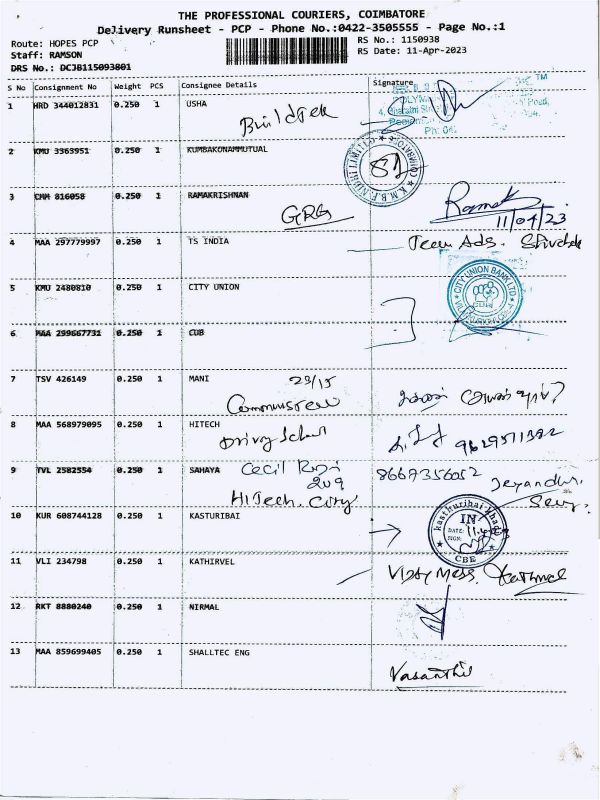 THE PROFESSIONAL COURIERS, COIMBATORE
Delivery Runsheet - PCP - Phone No.:0422-3505555 - Page No.:1
Route: HOPES PCP
RS No.: 1150938
Staff: RAMSON
RS Date: 11-Apr-2023
DRS No.: DCJB115093801
S No Consignment No Weight PCS Consignee Details Signature
1 HRD 344012831 0.250 1 USHA
BuildTek
2 KMU 3363951 0.250 1 KUMBAKONAMMUTUAL
81
3 CMM 816058 0.250 1 RAMAKRISHNAN
GRG
11/04/23
4 MAA 297779997 0.250 1 TS INDIA
Team Ads.
5 KMU 2480810 0.250 1 CITY UNION
CITY UNION BANK LTD
6 MAA 299667731 0.250 1 CUB
7 TSV 426149 0.250 1 MANI
29/15
8 MAA 568979095 0.250 1 HITECH
Driving School
9629571392
9 TVL 2582554 0.250 1 SAHAYA
Cecil
209
HiTech. City
8667356052
10 KUR 608744128 0.250 1 KASTURIBAI
IN
DATE:
SIGN:
CBE
11 VLI 234798 0.250 1 KATHIRVEL
Vijay Mess.
12 RKT 8880240 0.250 1 NIRMAL
13 MAA 859699405 0.250 1 SHALLTEC ENG
Vasanthi